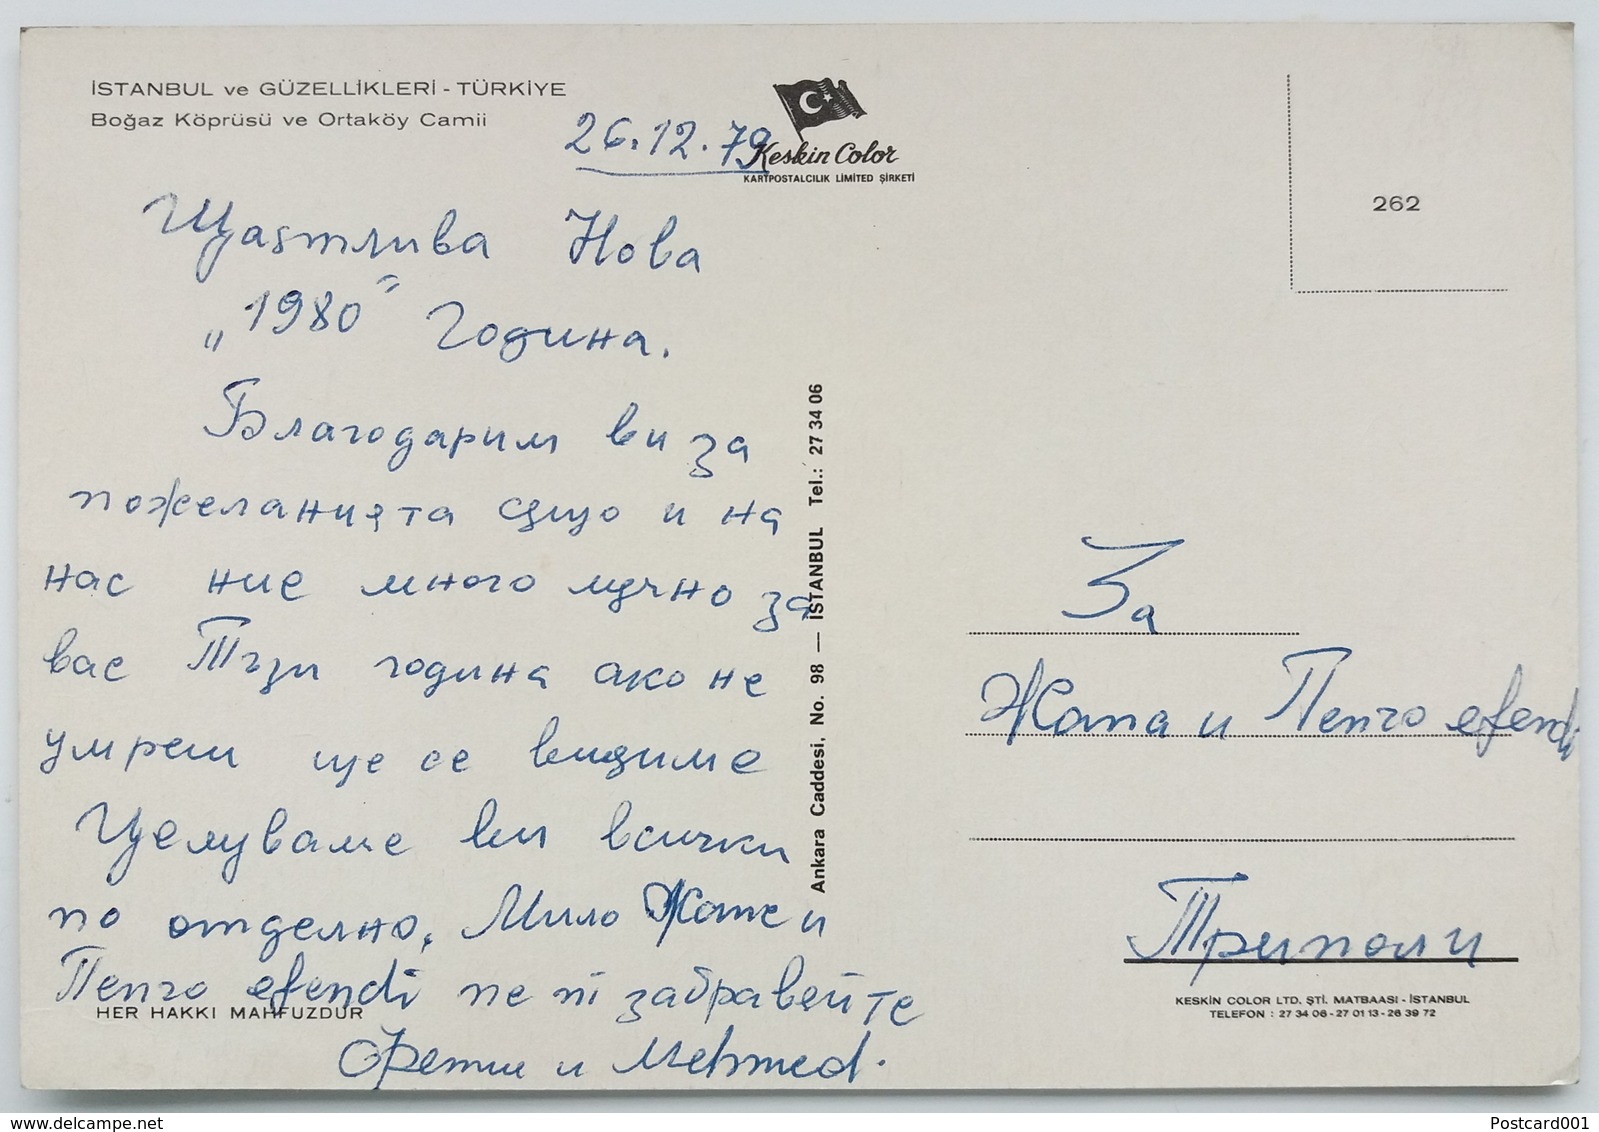 İSTANBUL ve GÜZELLİKLERİ - TÜRKİYE
Boğaz Köprüsü ve Ortaköy Camii
26.12.79
Keskin Color
KARTPOSTALCILIK LİMİTED ŞİRKETİ
262
Щастлива Нова
„1980" Година.
Благодарим ви за
пожеланията също и на
нас ние много мъчно за
вас Тъзи година ако не
умреш ще се видиме
Целуваме ви всички
по отделно. Мило Жопе и
Пепго efendi не ni забравейте
Фетие и Mehmed.
HER HAKKI MAHFUZDUR
Ankara Caddesi, No. 98 — İSTANBUL Tel.: 27 34 06
За
Жопа и Пепго efendi
Триполи
KESKİN COLOR LTD. ŞTİ. MATBAASI - İSTANBUL
TELEFON : 27 34 06 - 27 01 13 - 26 39 72
www.delcampe.net
Postcard001